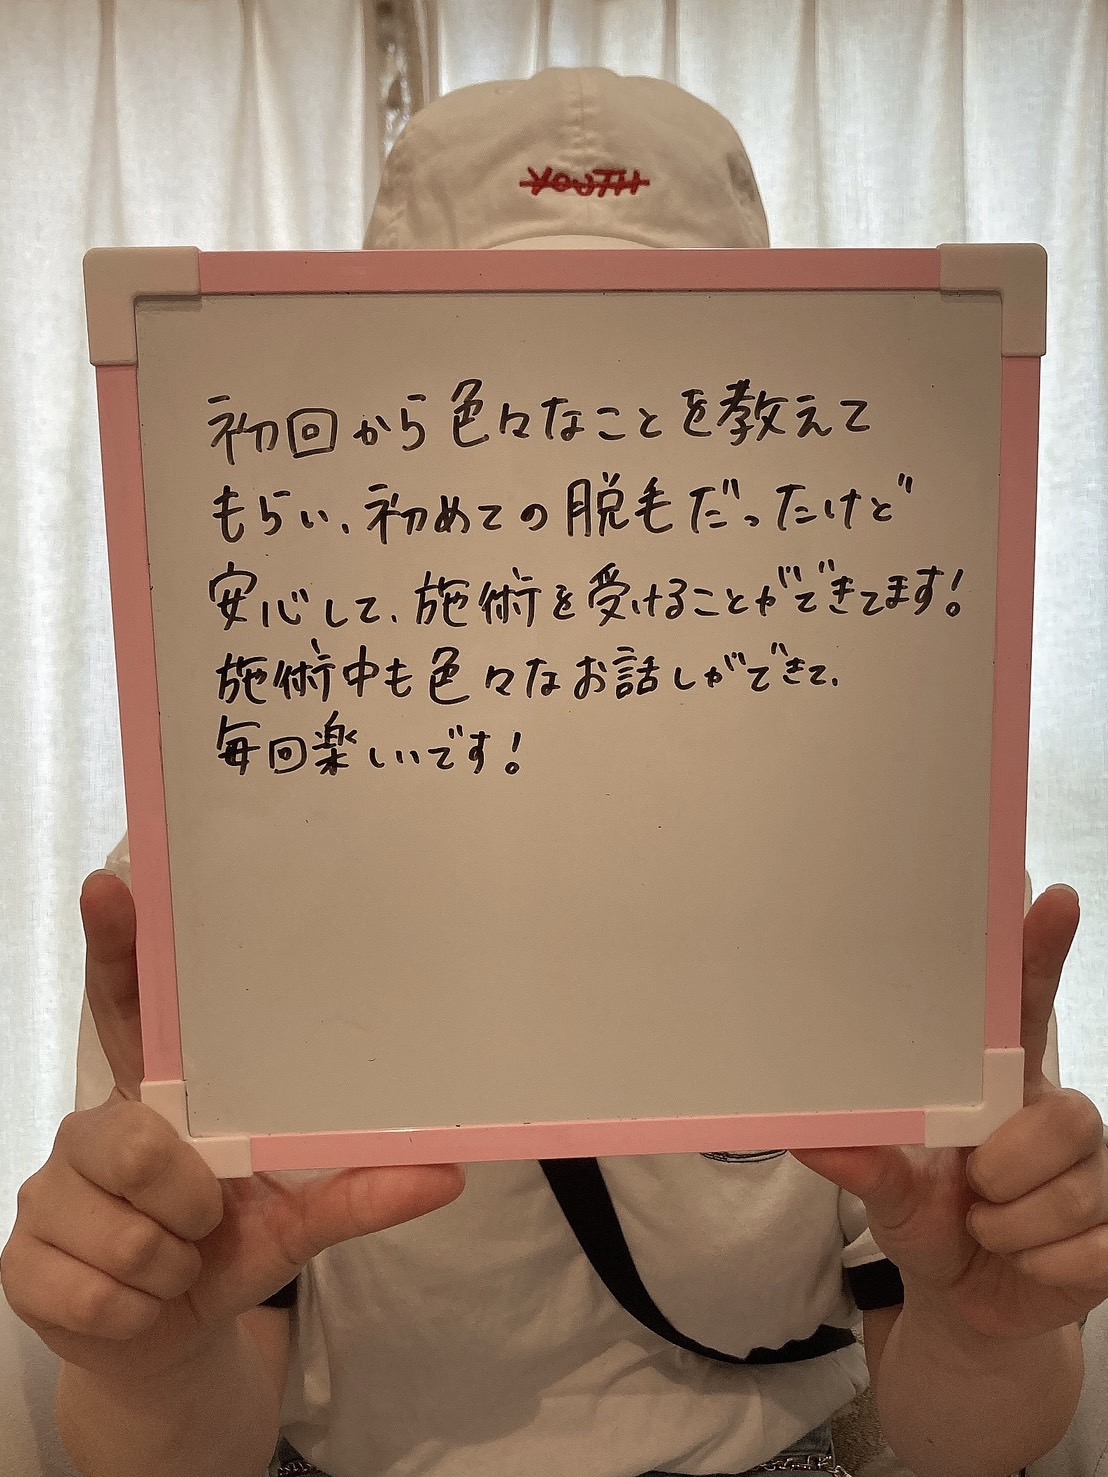 YOUTH
初回から色々なことを教えて
もらい、初めての脱毛だったけど
安心して、施術を受けることができてます!
施術中も色々なお話しができて、
毎回楽しいです!